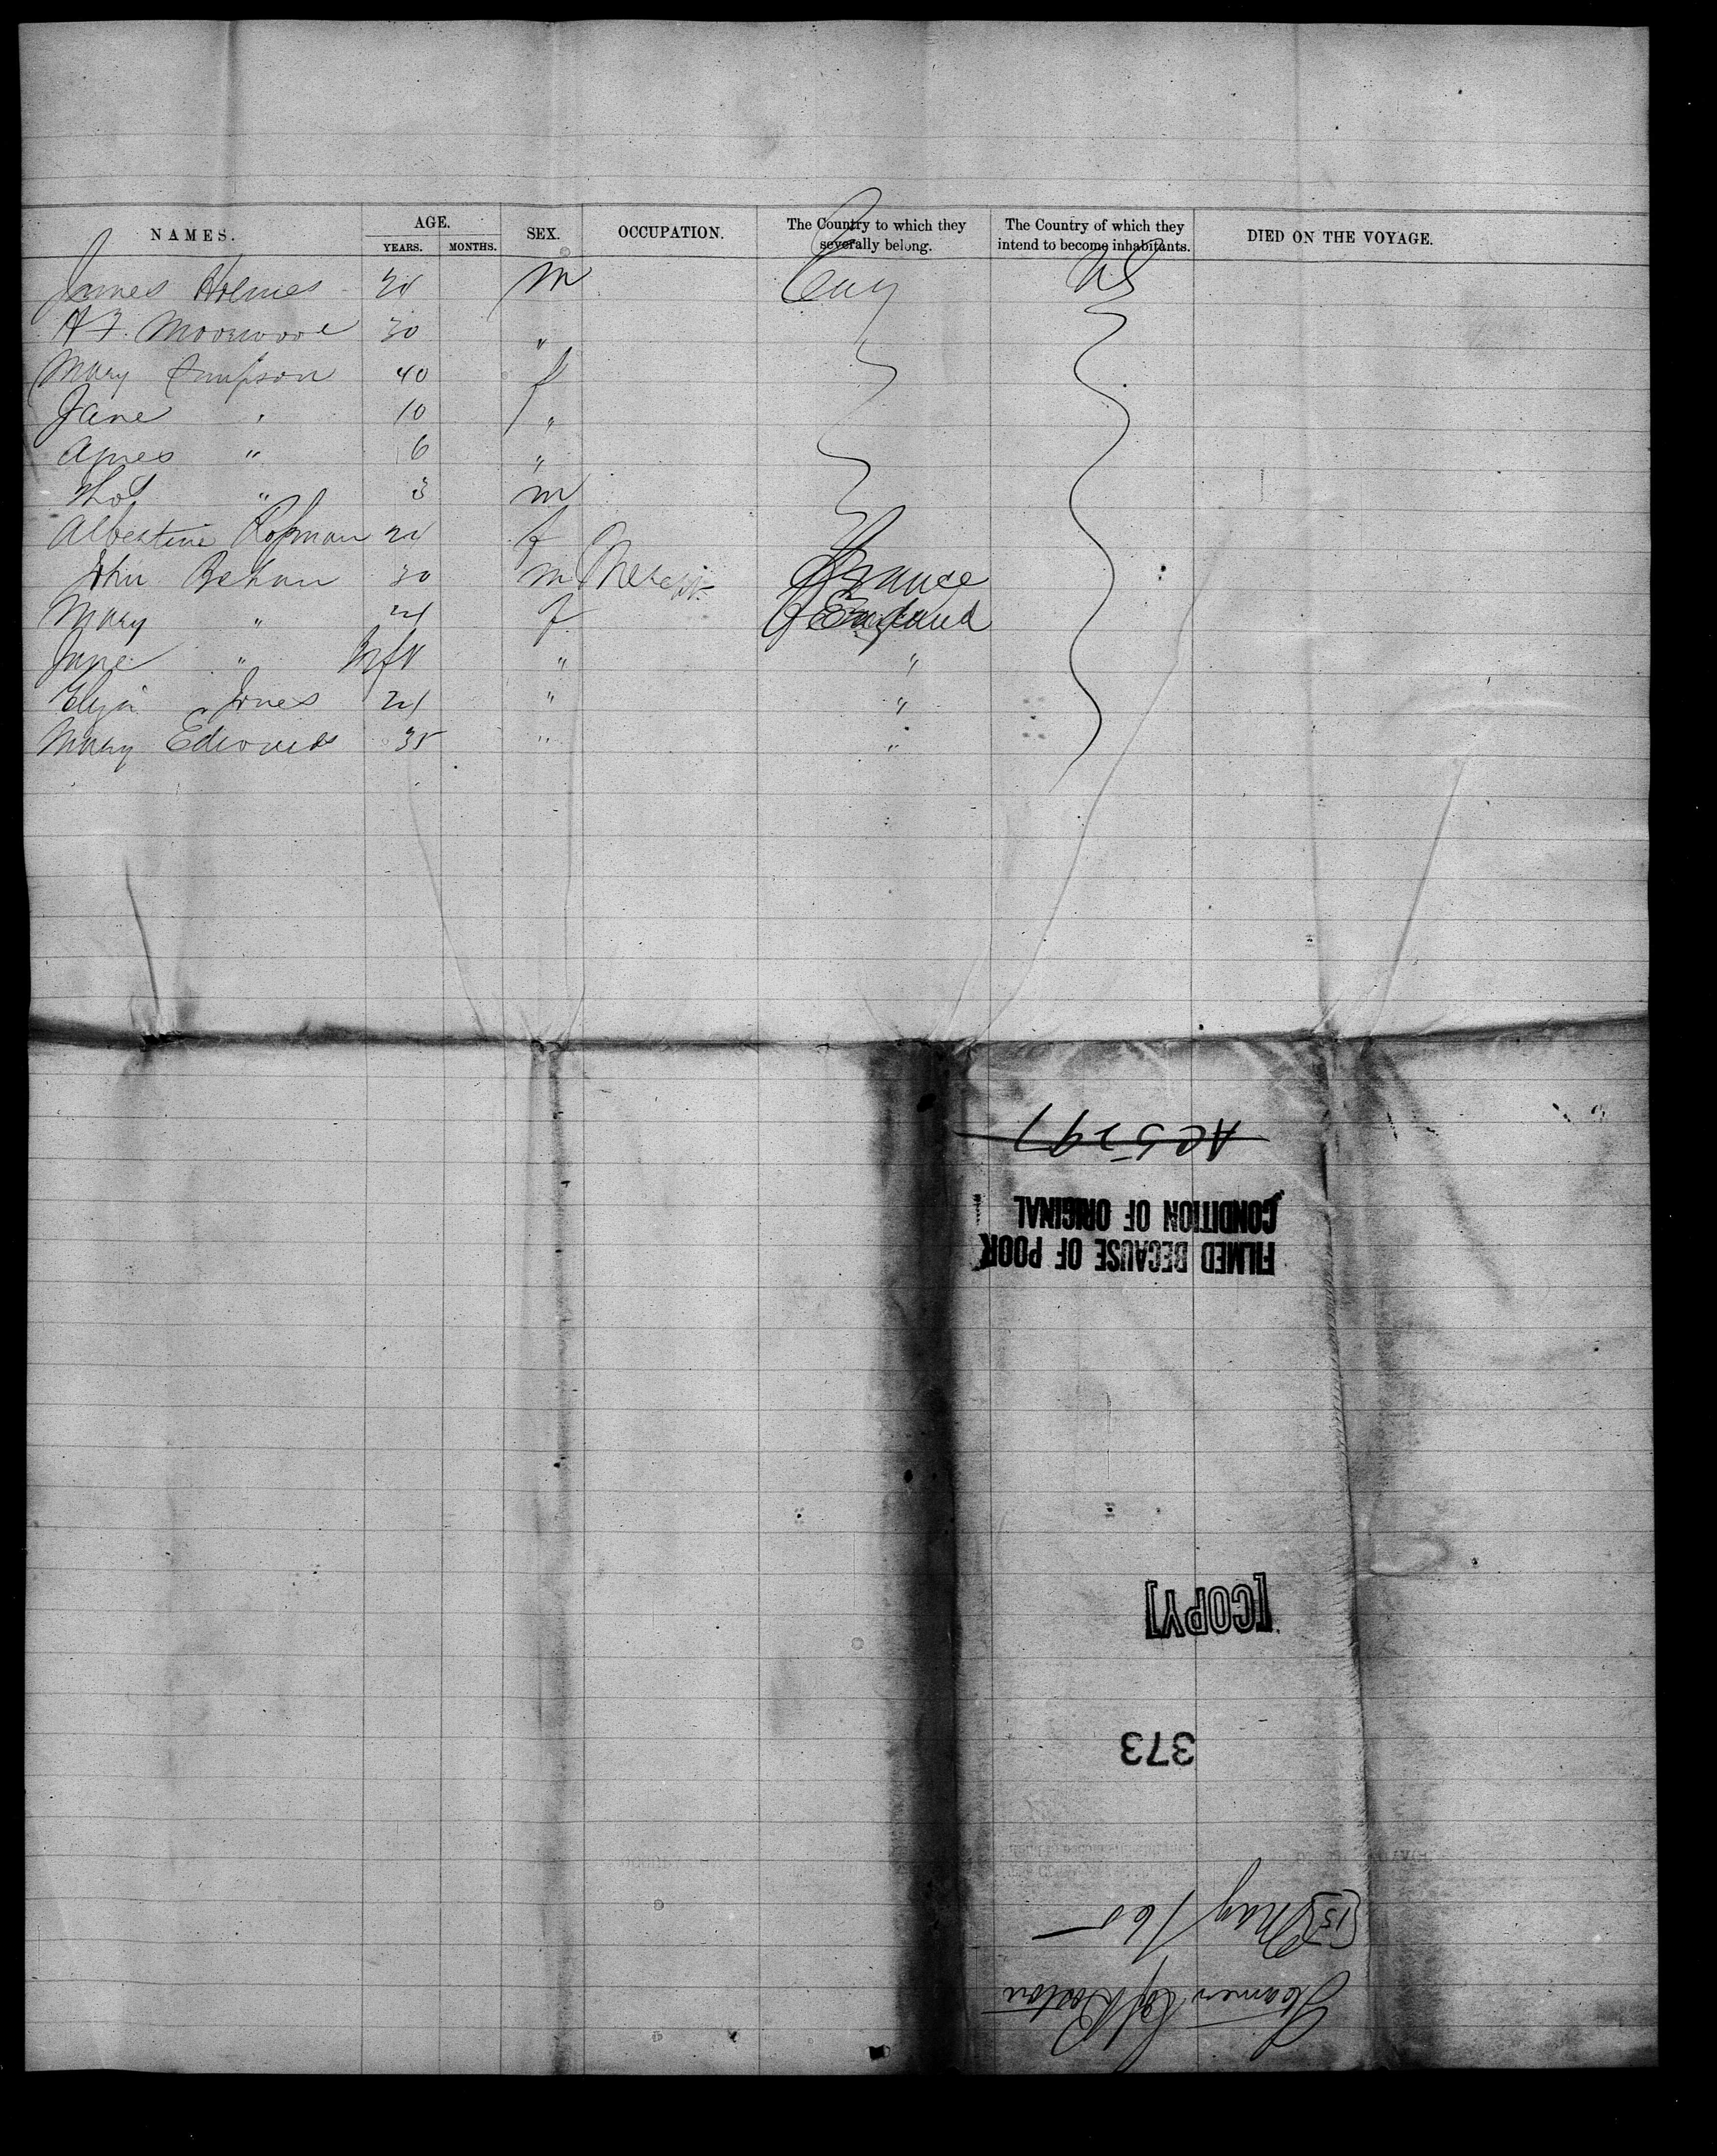 NAMES. AGE. YEARS. MONTHS. SEX. OCCUPATION. The Country to which they severally belong. The Country of which they intend to become inhabitants. DIED ON THE VOYAGE.
James Holmes m Eng US
H F. Moorwood 30 "
Mary Simpson 40 f
Jane " 10 "
Agnes " 6 "
Thos " 3 m
Albertine f
John Behan 30 m France
Mary " f England
Jane " Inft " "
Eliza Jones " "
Mary Edwards 35 " "
AC 5297
FILMED BECAUSE OF POOR
CONDITION OF ORIGINAL
[COPY]
373
15 May /65
Steamer City of Boston